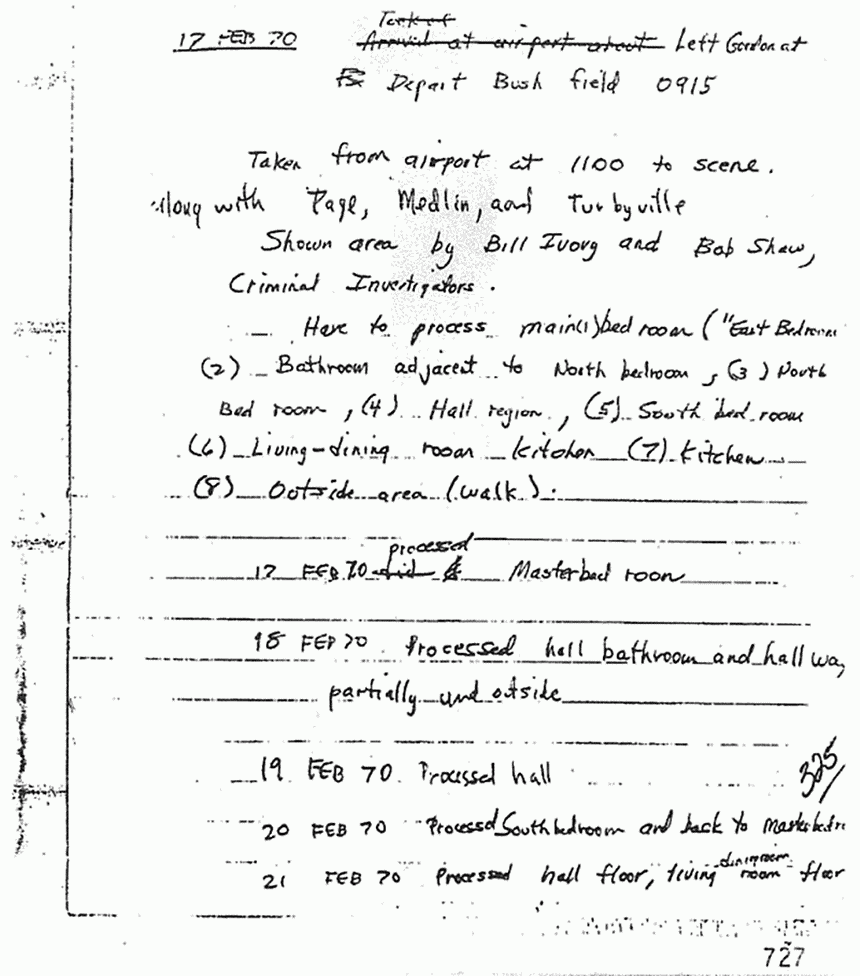 17 FEB 70 Arrival at airport about Left Gordon at
Depart Bush field 0915
Taken from airport at 1100 to scene.
Along with Page, Medlin, and Turbyville
Shown area by Bill Ivory and Bob Shaw,
Criminal Investigators.
— Have to process main (1) bed room ("East Bedroom
(2) Bathroom adjacent to North bedroom, (3) North
Bed room, (4) Hall region, (5) South bed room
(6) Living-dining room kitchen (7) Kitchen
(8) Outside area (walk).
processed
17 FEB 70 did Masterbed room
18 FEB 70 Processed hall bathroom and hall way
partially and outside
19 FEB 70 Processed hall
325/
20 FEB 70 Processed South bedroom and back to Masterbedr
diningroom
21 FEB 70 Processed hall floor, living room floor
727